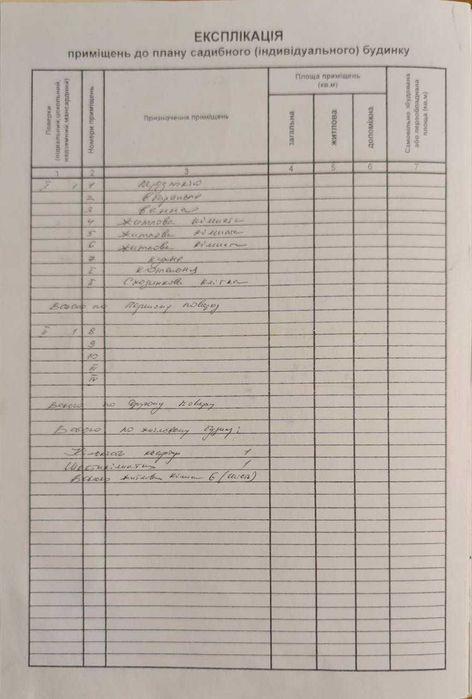 ЕКСПЛІКАЦІЯ
приміщень до плану садибного (індивідуального) будинку
Поверхи (підвальний, цокольний, надземний, мансардний)
Номери приміщень
Призначення приміщень
Площа приміщень (кв.м)
загальна
житлова
допоміжна
Самовільно збудована або переобладнана площа (кв.м)
1 2 3 4 5 6 7
I 1 1
2 Вбиральня
3 Ванна
4 Житлова кімната
5 Житлова кімната
6 Житлова кімната
7 Кухня
I Котельня
II Сходинкова клітка
Всього по Першому поверху
II 1 8
9
10
III
IV
Всього по Другому поверху
Всього по житловому будинку:
Кількість квартир 1
Шестикімнатних 1
Всього житлових кімнат 6 (шість)